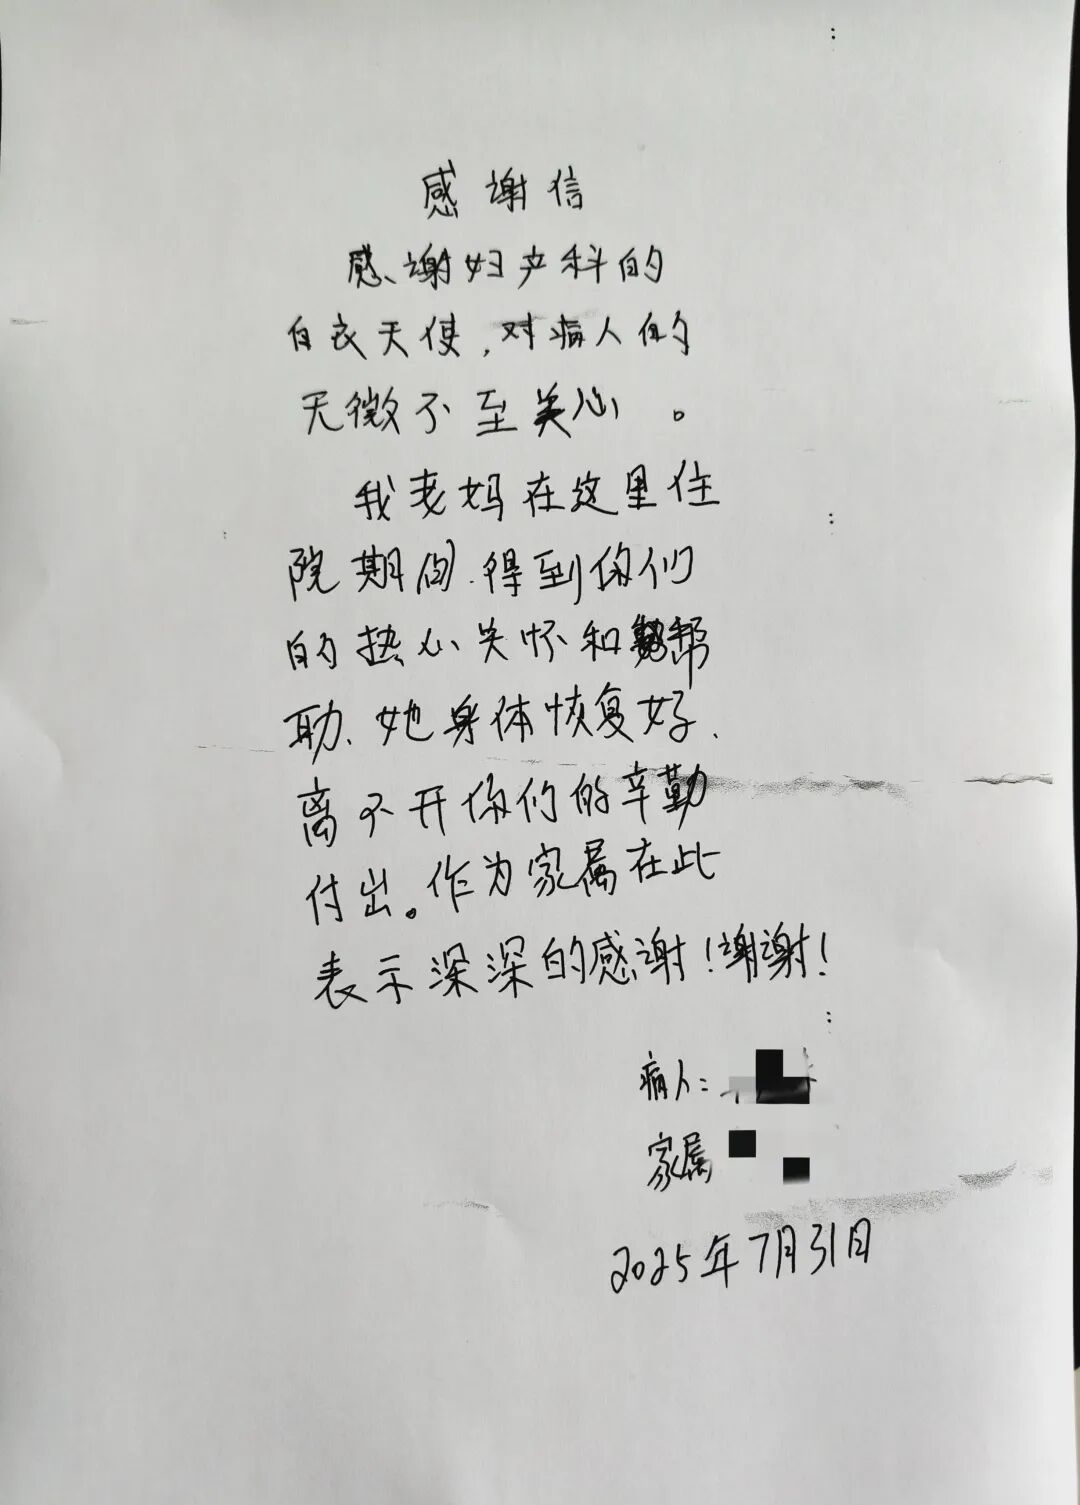 感谢信
感谢妇产科的
白衣天使，对病人的
无微不至关心。
我老妈在这里住
院期间、得到你们
的热心关怀和帮
助、她身体恢复好、
离不开你们的辛勤
付出。作为家属在此
表示深深的感谢！谢谢！
病人：
家属
2025年7月31日